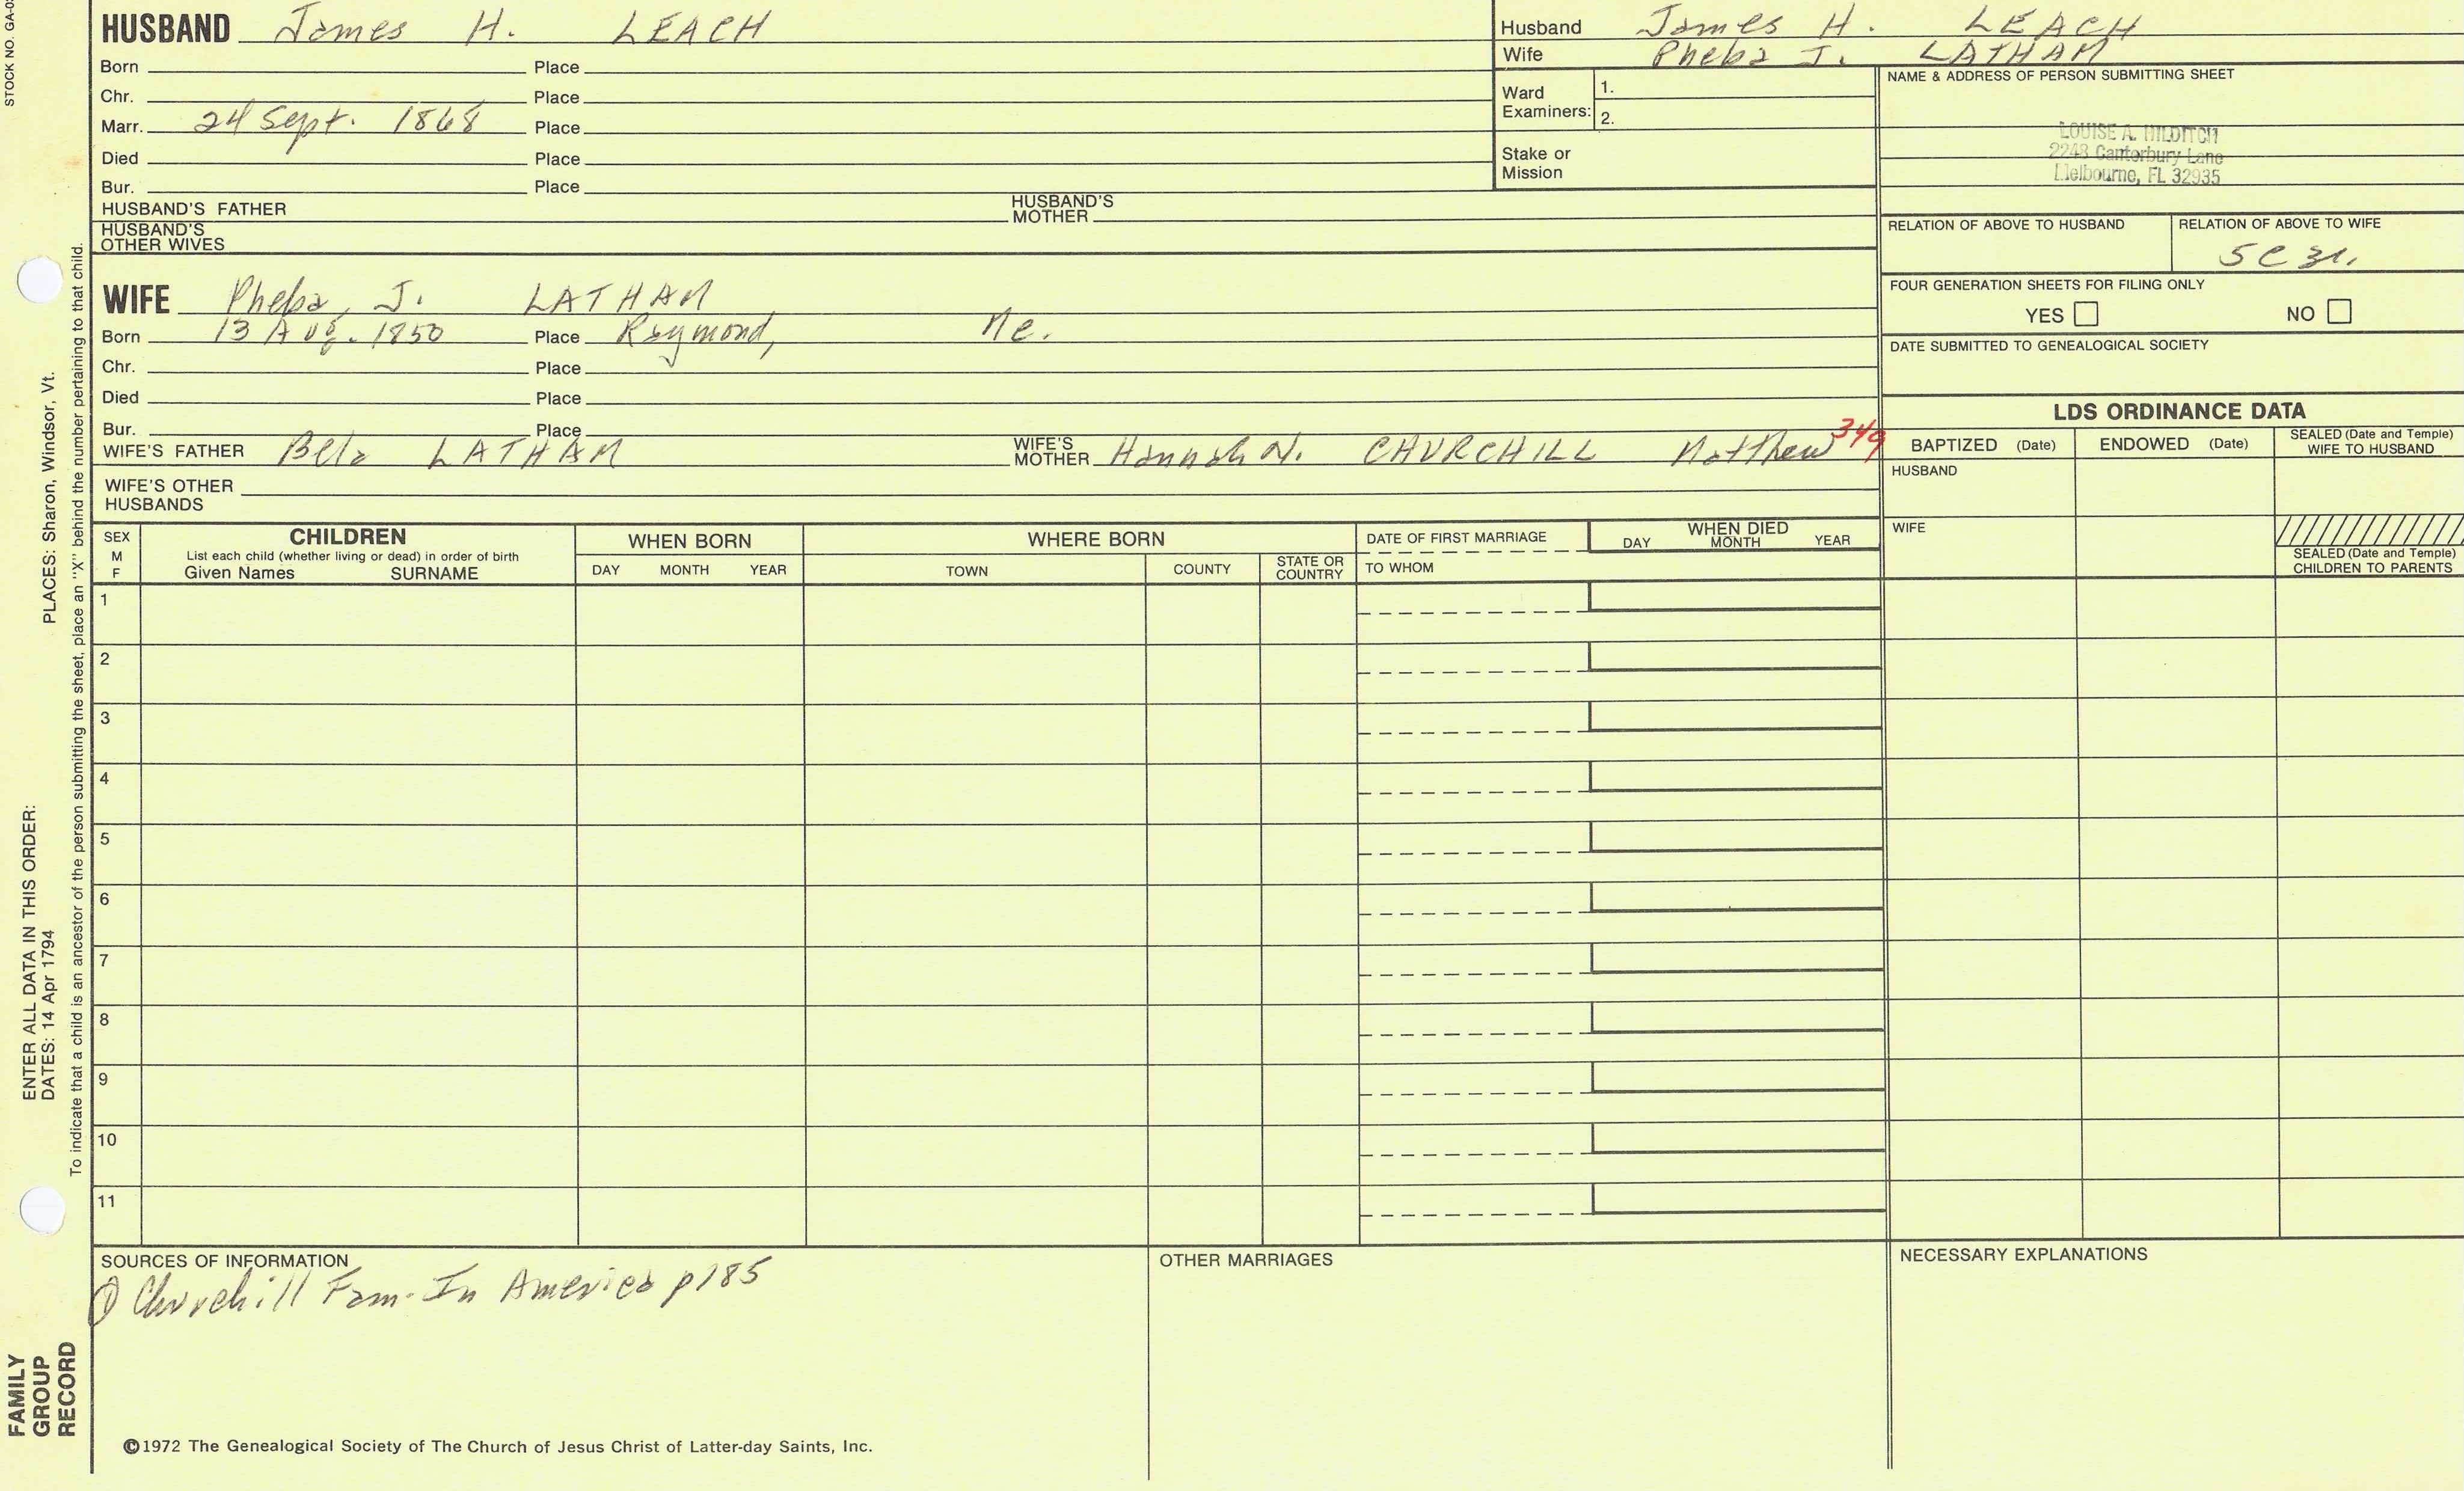 STOCK NO. GA-0
HUSBAND James H. LEACH
Born Place
Chr. Place
Marr. 24 Sept. 1868 Place
Died Place
Bur. Place
HUSBAND'S FATHER HUSBAND'S MOTHER
HUSBAND'S OTHER WIVES
Husband James H. LEACH
Wife Pheba J. LATHAM
Ward Examiners: 1.
2.
Stake or Mission
NAME & ADDRESS OF PERSON SUBMITTING SHEET
LOUISE A. HILDITCH
2248 Canterbury Lane
Melbourne, FL 32935
RELATION OF ABOVE TO HUSBAND
RELATION OF ABOVE TO WIFE
5C3r.
FOUR GENERATION SHEETS FOR FILING ONLY
YES NO
DATE SUBMITTED TO GENEALOGICAL SOCIETY
WIFE Pheba, J. LATHAM
Born 13 Aug. 1850 Place Raymond, Me.
Chr. Place
Died Place
Bur. Place
WIFE'S FATHER Bela LATHAM WIFE'S MOTHER Hannah N. CHURCHILL Matthew 349
WIFE'S OTHER HUSBANDS
LDS ORDINANCE DATA
BAPTIZED (Date) ENDOWED (Date) SEALED (Date and Temple) WIFE TO HUSBAND
HUSBAND
WIFE
SEALED (Date and Temple) CHILDREN TO PARENTS
SEX M F
CHILDREN
List each child (whether living or dead) in order of birth
Given Names SURNAME
WHEN BORN
DAY MONTH YEAR
WHERE BORN
TOWN COUNTY STATE OR COUNTRY
DATE OF FIRST MARRIAGE
TO WHOM
WHEN DIED
DAY MONTH YEAR
1
2
3
4
5
6
7
8
9
10
11
SOURCES OF INFORMATION
① Churchill Fam. In America p185
OTHER MARRIAGES
NECESSARY EXPLANATIONS
©1972 The Genealogical Society of The Church of Jesus Christ of Latter-day Saints, Inc.
FAMILY
GROUP
RECORD
ENTER ALL DATA IN THIS ORDER:
DATES: 14 Apr 1794 PLACES: Sharon, Windsor, Vt.
To indicate that a child is an ancestor of the person submitting the sheet, place an "X" behind the number pertaining to that child.